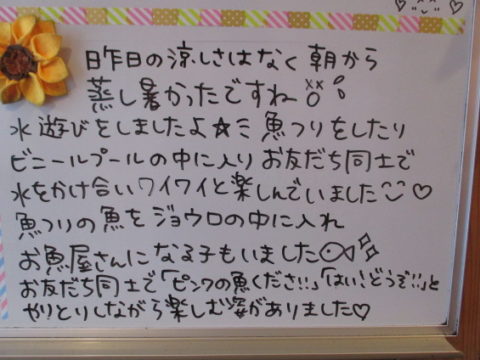 昨日の涼しさはなく 朝から
蒸し暑かったですね
水遊びをしましたよ☆ミ 魚つりをしたり
ビニールプールの中に入り お友だち同士で
水をかけ合いワイワイと楽しんでいました♡
魚つりの魚を ジョウロの中に入れ
お魚屋さんになる子もいました
お友だち同士で「ピンクの魚ください!」「はい!どうぞ!!」と
やりとりしながら楽しむ姿がありました♡